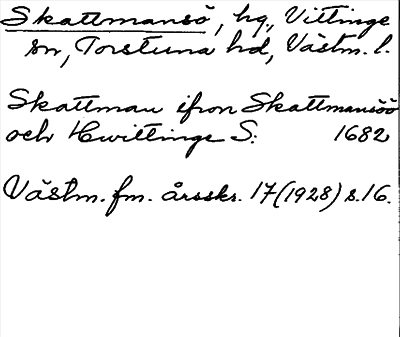 Skattmansö, hg., Vittinge
sn, Torstuna hd, Västm. l.
Skattman ifron Skattmansöö
och Hwittinge S: 1682
Västm. fm. årsskr. 17(1928) s.16.